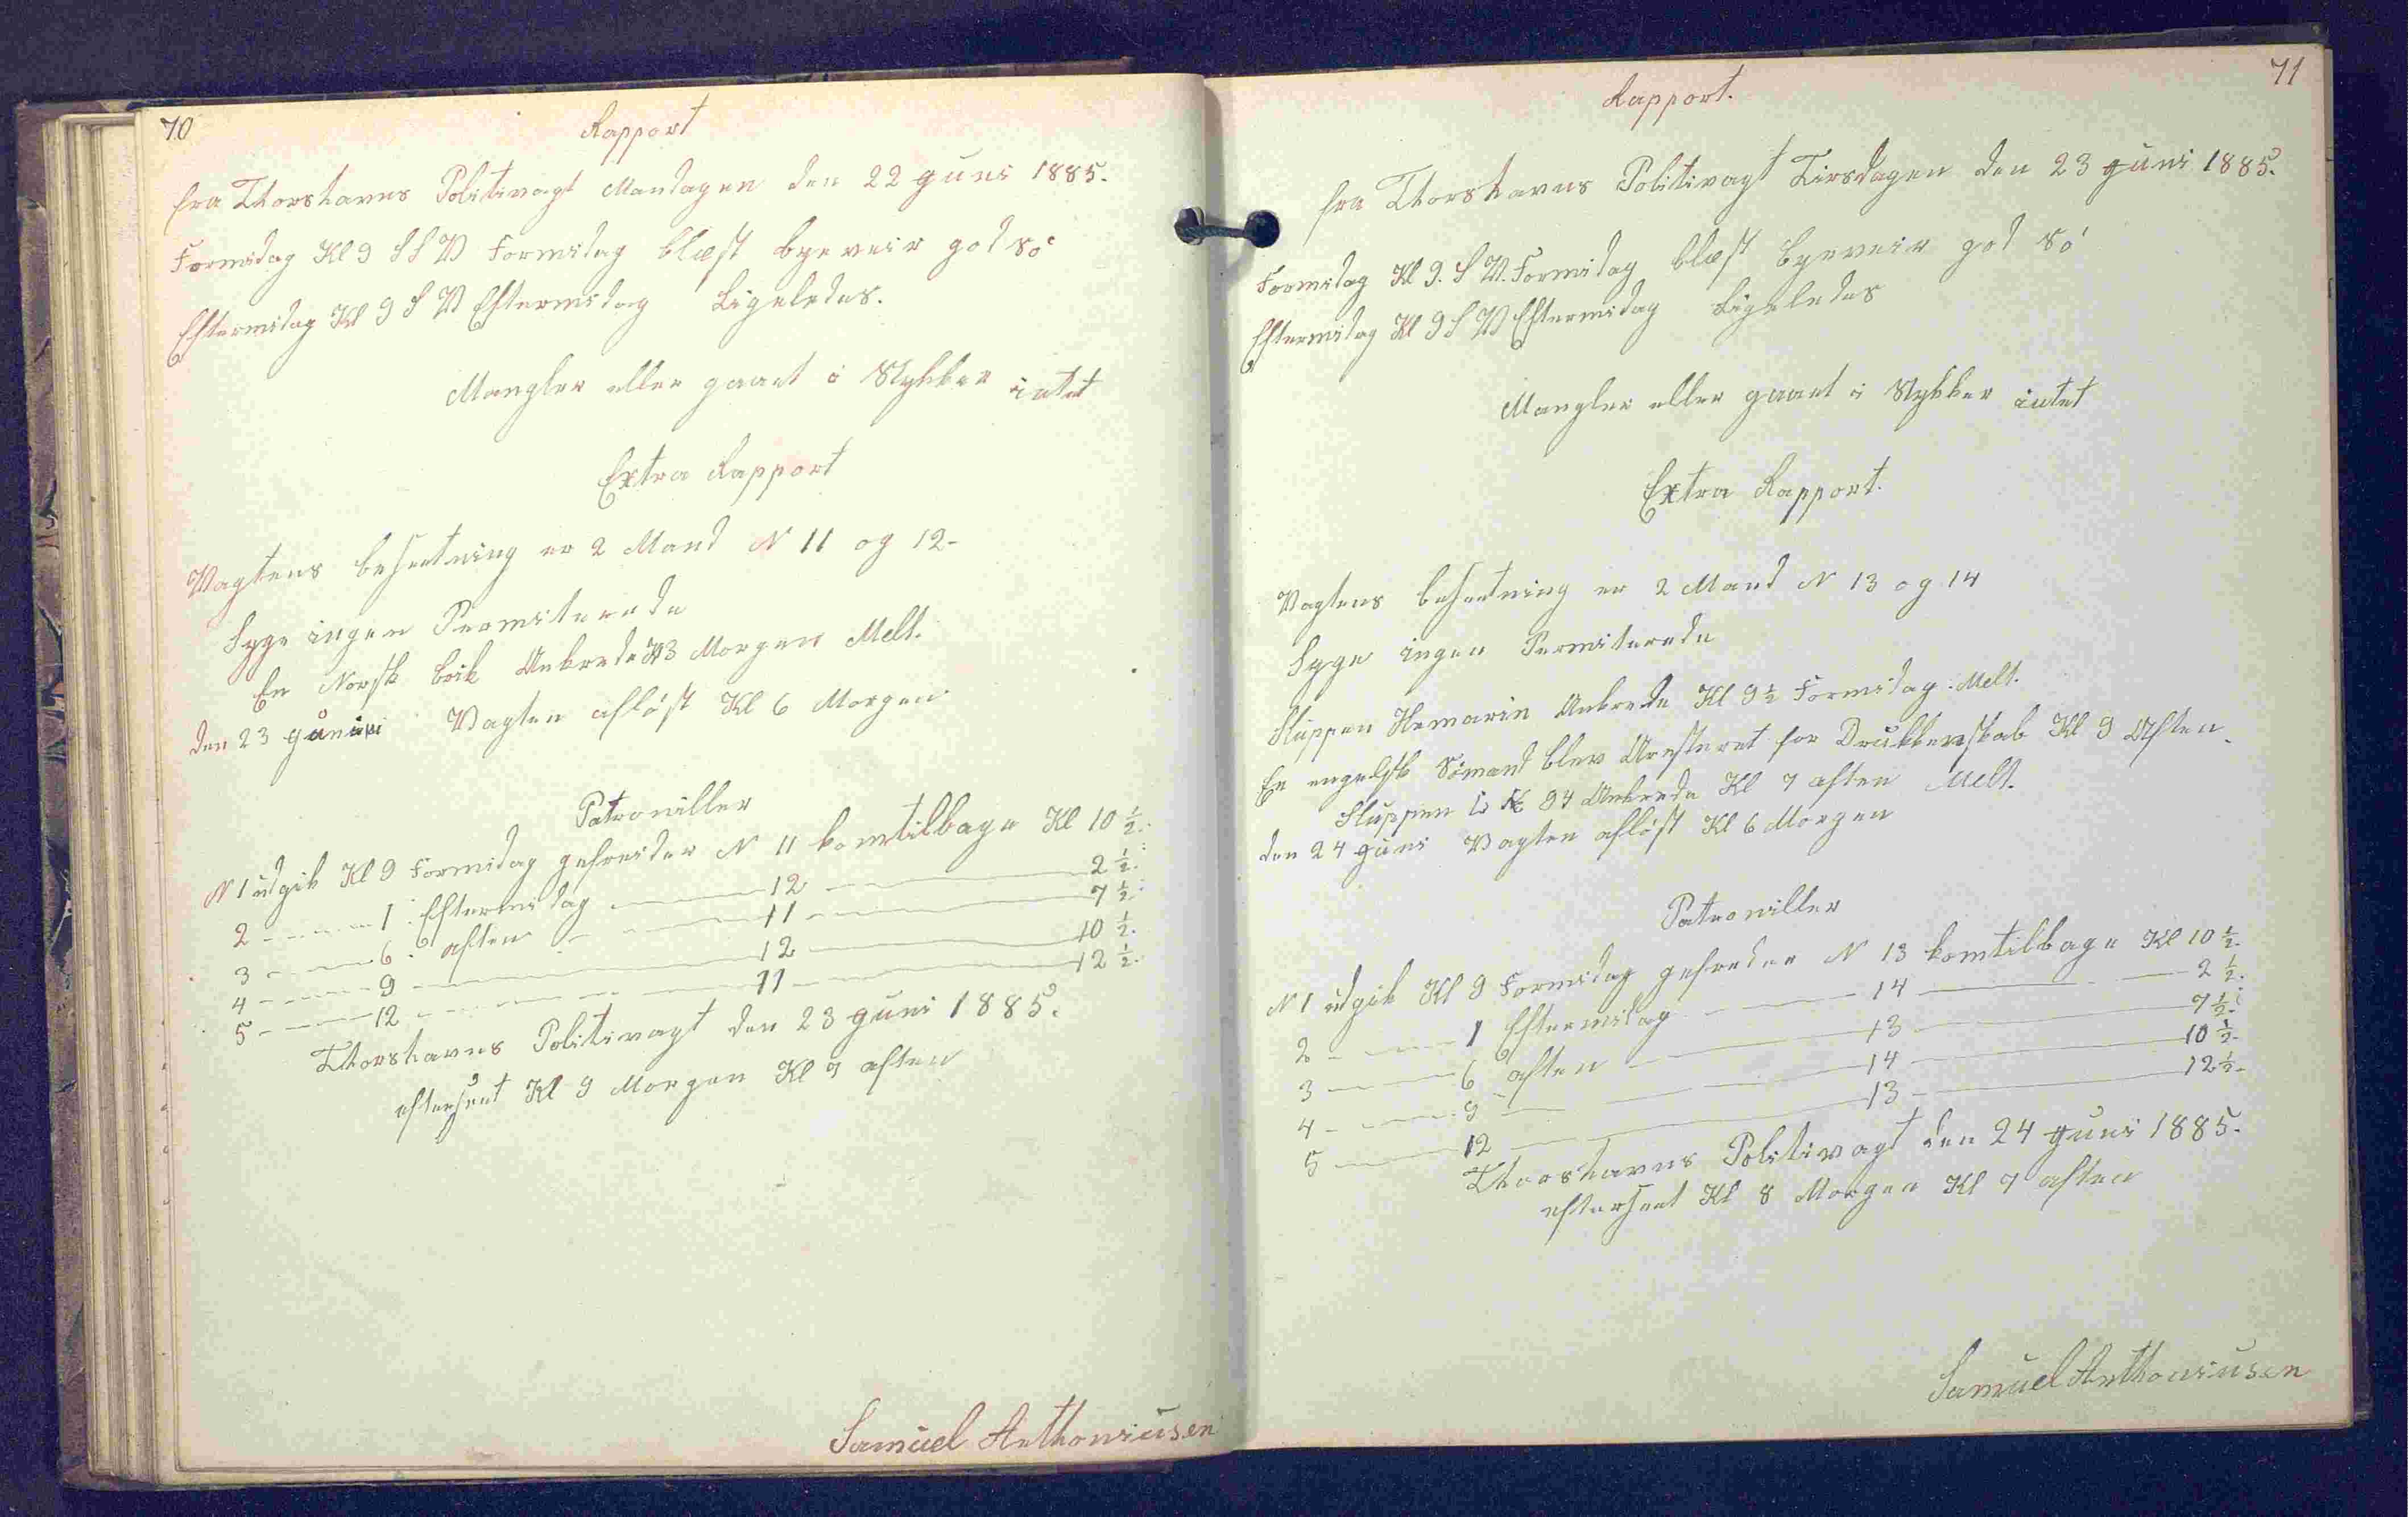 70
Rapport
fra Thorshavns Politivagt Mandagen den 22 Juni 1885.
Formidag Kl 9 S S V Formidag blæst byeveir god Sö
Eftermidag Kl 9 S V Eftermidag Ligeledes.
Mangler eller gaaet i Stykker intet
Extra Rapport
Vagtens besætning er 2 Mand N 11 og 12-
Syge ingen Permiterede
En Norsk Ankrede Kl 3 Morgen Melt.
den 23 Juni Vagten aflöst Kl 6 Morgen
Patroniller
N 1 udgik Kl 9 Formidag gefreider N 11 komtilbage Kl 10 ½.
2 - - - 1 Eftermidag - - - 12 - - - 2 ½.
3 - - - 6 aften - - - 11 - - - 7 ½
4 - - - 9 - - - 12 - - - 10 ½.
5 - - - 12 - - - 11 - - - 12 ½.
Thorshavns Politivagt den 23 Juni 1885.
efterseet Kl 9 Morgen Kl 7 aften
Samuel Anthoniusen
71
Rapport.
fra Thorshavns Politivagt Tirsdagen den 23 Juni 1885.
Formidag Kl 9. S V. Formidag blæst byeveir god Sö
Eftermidag Kl 9 S V Eftermidag Ligeledes
Mangler eller gaaet i Stykker intet
Extra Rapport.
Vagtens besætning er 2 Mand N 13 og 14
Syge ingen Permiterede
Sluppen Ankrede Kl 9 ½ Formidag. Melt.
En engelsk Sömand blev Aresteret for Drukkenskab Kl 9 Aften.
Sluppen 94 Ankrede Kl 7 aften Melt.
den 24 Juni Vagten aflöst Kl 6 Morgen
Patroniller
N 1 udgik Kl 9 Formidag gefreder N 13 komtilbage Kl 10 ½.
2 - - - 1 Eftermidag - - - 14 - - - 2 ½.
3 - - - 6 aften - - - 13 - - - 7 ½.
4 - - - 9 - - - 14 - - - 10 ½.
5 - - - 12 - - - 13 - - - 12 ½.
Thorshavns Politivagt den 24 Juni 1885.
efterseet Kl 8 Morgen Kl 7 aften
Samuel Anthoniusen